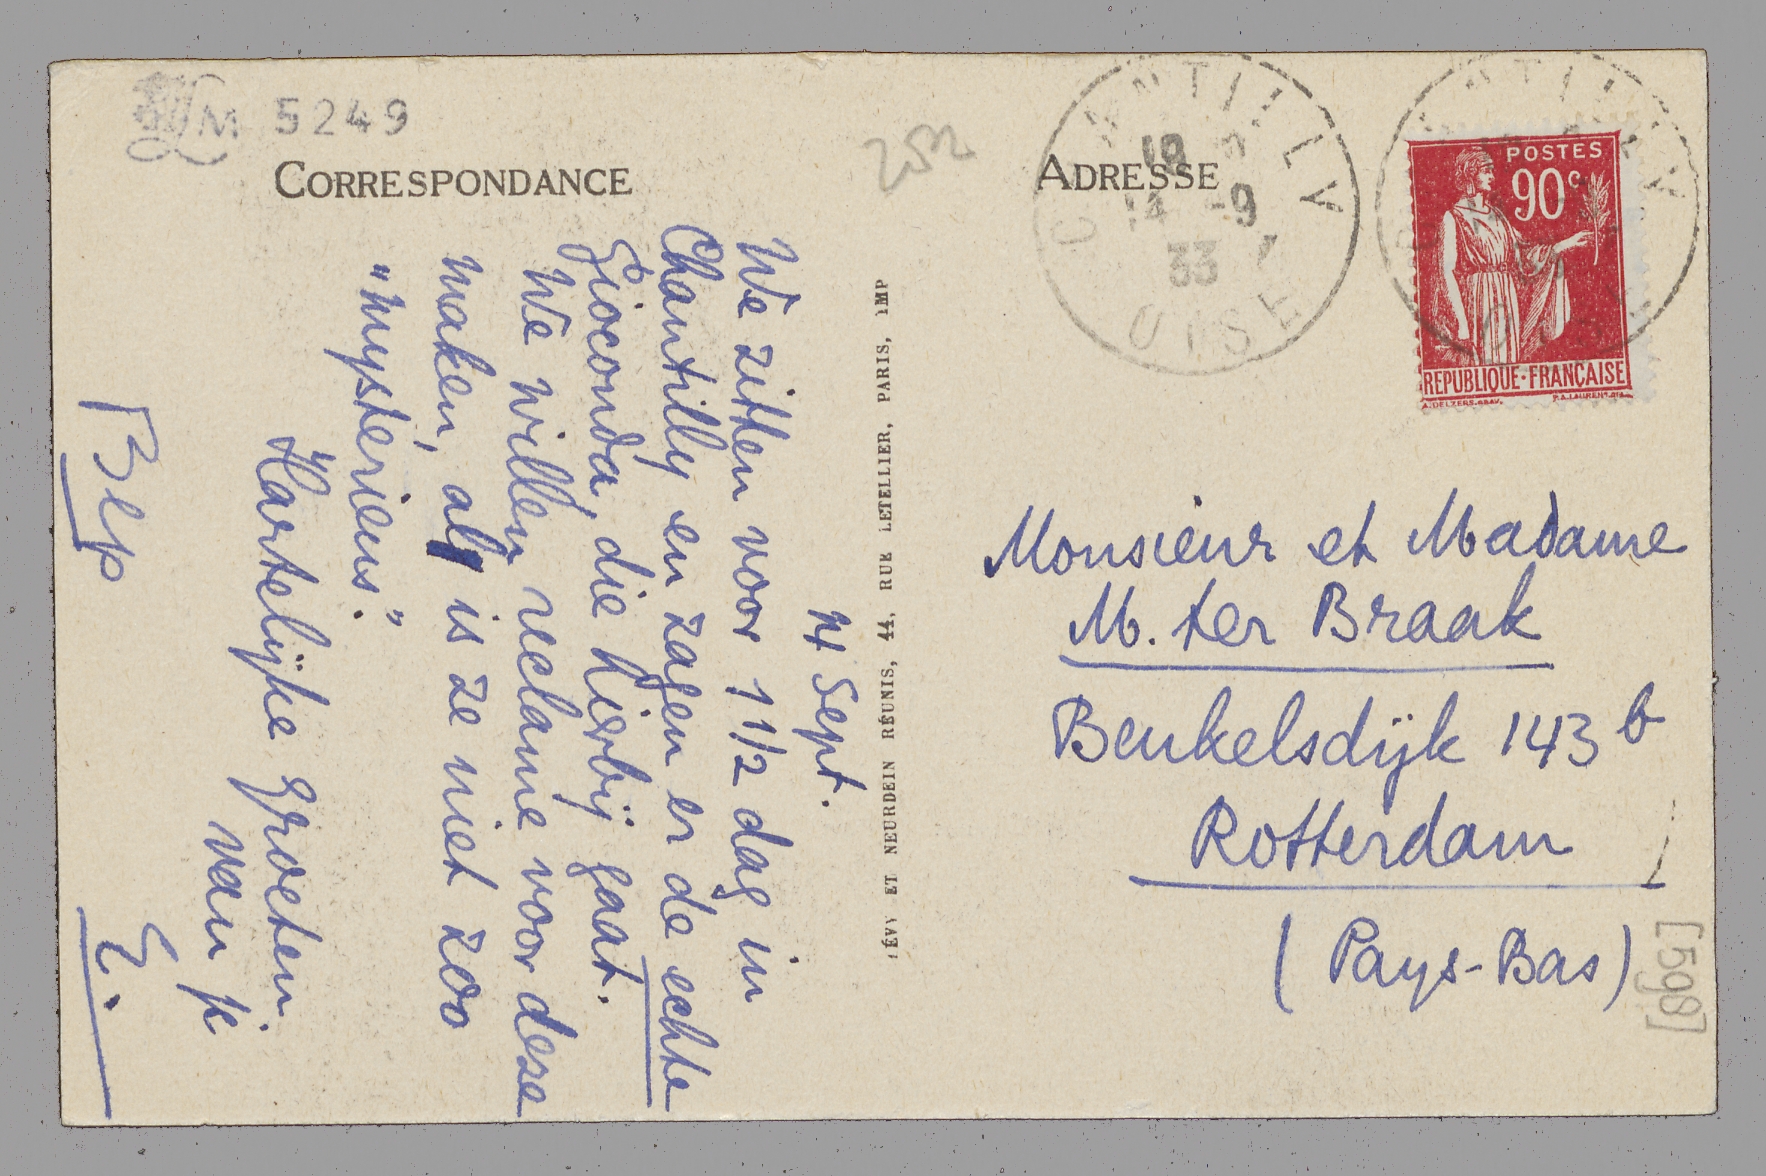 LM 5249
CORRESPONDANCE
14 Sept.
We zitten voor 1 1/2 dag in
Chantilly en zagen er de echte
Gioconda, die hierbij gaat.
We willen reclame voor deze
maken, al is ze niet zoo
"mysterieus".
Hartelijke groeten.
van je
E.
Bep
LÉVY ET NEURDEIN RÉUNIS, 44, RUE LETELLIER, PARIS, IMP
252
ADRESSE
CHANTILLY
18
14 -9
33
OISE
POSTES
90c
REPUBLIQUE·FRANÇAISE
Monsieur et Madame
M. ter Braak
Beukelsdijk 143 b
Rotterdam
(Pays-Bas)
[598]